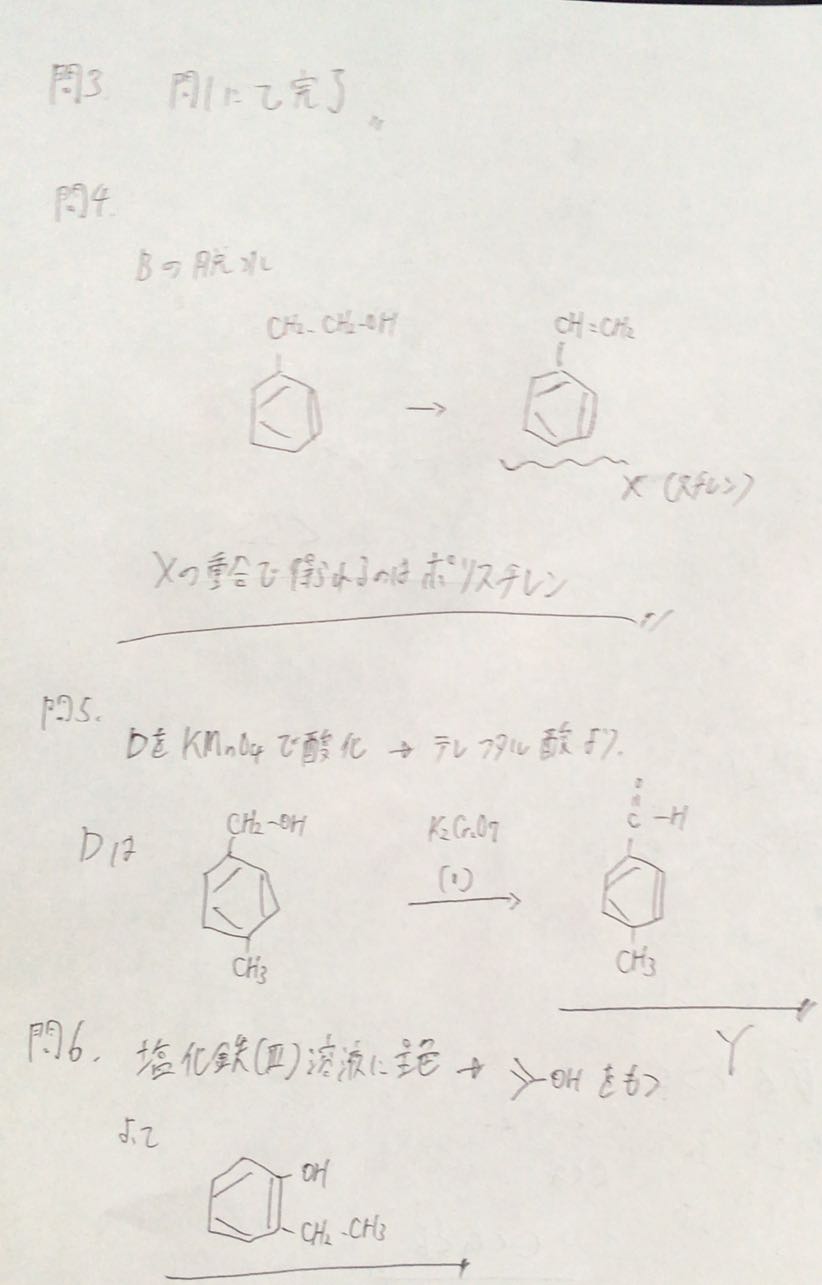 問3 問1にて完了
問4.
Bの脱水
CH2-CH2-OH
CH=CH2
→
X (スチレン)
Xの重合で得られるのはポリスチレン
問5.
DをKMnO4で酸化 → テレフタル酸より.
Dは
CH2-OH
CH3
K2Cr2O7
(O)
O
C-H
CH3
Y
問6. 塩化鉄(III)溶液に呈色 → -OHをもつ
よって
OH
CH2-CH3